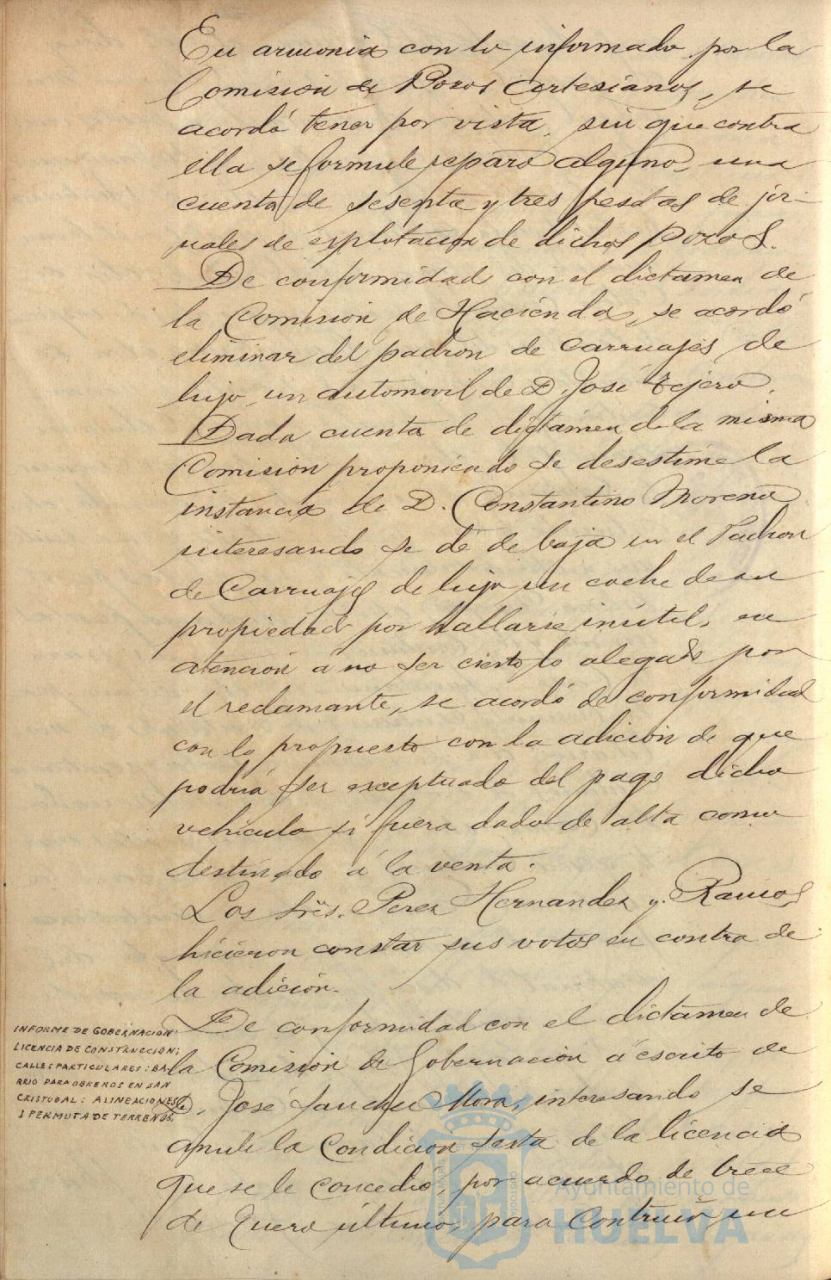 En armonia con lo informado por la
Comision de Pozos Cartesianos, se
acordó tener por vista, sin que contra
ella se formule reparo alguno, una
cuenta de sesenta y tres pesetas de jor-
nales de explotacion de dichos Pozos.
De conformidad con el dictamen de
la Comision de Hacienda, se acordó
eliminar del padron de carruajes de
lujo un automovil de D. José Tejero.
Dada cuenta de dictámen de la misma
Comision proponiendo se desestime la
instancia de D. Constantino Moreno
interesando se dé de baja en el Padron
de Carruajes de lujo un coche de su
propiedad por hallarse inútil, en
atencion á no ser cierto lo alegado por
el reclamante, se acordó de conformidad
con lo propuesto con la adicion de que
podria ser exceptuado del pago dicho
vehiculo si fuera dado de alta como
destinado á la venta.
Los Srēs. Perez Hernandez y Ramos
hicieron constar sus votos en contra de
la adición.
INFORME DE GOBERNACION:
LICENCIA DE CONSTRUCCION;
CALLES PARTICULARES: BA-
RRIO PARA OBREROS EN SAN
CRISTOBAL: ALINEACIONES
Y PERMUTA DE TERRENOS.
De conformidad con el dictamen de
la Comisión de Gobernación á escrito de
D. José Sanchez Mora, interesando se
anule la condicion sesta de la licencia
que se le concedió por acuerdo de trece
de Enero último, para construir un
Ayuntamiento de
HUELVA